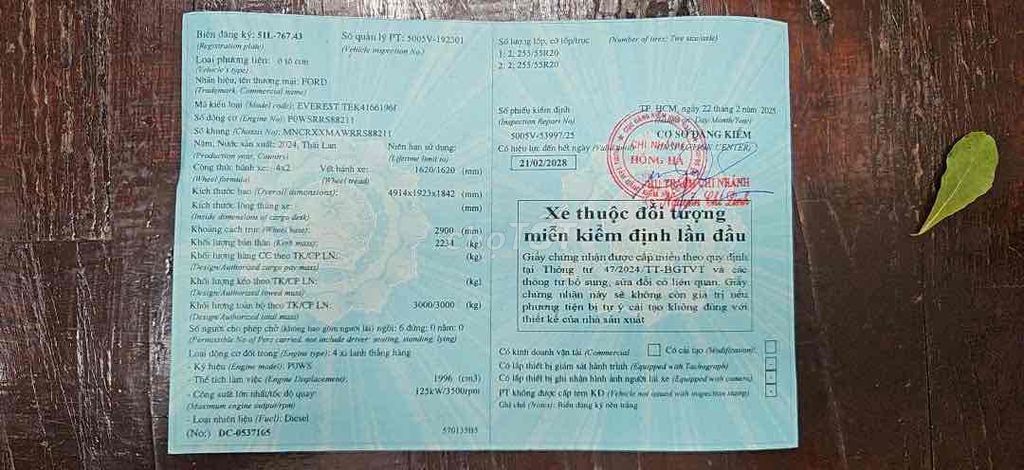 Biển đăng ký: 51L-767.43
(Registration plate)
Số quản lý PT: 5005V-192301
(Vehicle inspection No.)
Loại phương tiện: ô tô con
(Vehicle's type)
Nhãn hiệu, tên thương mại: FORD
(Trademark, Commercial name)
Mã kiểu loại (Model code): EVEREST TEK4166196f
Số động cơ (Engine No): P0WSRRS88211
Số khung (Chassis No): MNCRXXMAWRRS88211
Năm, Nước sản xuất: 2024, Thái Lan
(Production year, Country)
Niên hạn sử dụng:
(Lifetime limit to)
Công thức bánh xe: 4x2
(Wheel formula)
Vết bánh xe: 1620/1620 (mm)
(Wheel tread)
Kích thước bao (Overall dimensions): 4914x1923x1842 (mm)
Kích thước lòng thùng xe: (mm)
(Inside dimensions of cargo desk)
Khoảng cách trục (Wheel base): 2900 (mm)
Khối lượng bản thân (Kerb mass): 2234 (kg)
Khối lượng hàng CC theo TK/CP LN: (kg)
(Design/Authorized cargo pay mass)
Khối lượng kéo theo TK/CP LN: (kg)
(Design/Authorized towed mass)
Khối lượng toàn bộ theo TK/CP LN: 3000/3000 (kg)
(Design/Authorized total mass)
Số người cho phép chở (không bao gồm người lái) ngồi: 6 đứng: 0 nằm: 0
(Permissible No of Pers carried, not include driver: seating, standing, lying)
Loại động cơ đốt trong (Engine type): 4 xi lanh thẳng hàng
- Ký hiệu (Engine model): P0WS
- Thể tích làm việc (Engine Displacement): 1996 (cm3)
- Công suất lớn nhất/tốc độ quay: 125kW/3500rpm
(Maximum engine output/rpm)
- Loại nhiên liệu (Fuel): Diesel
(No:) DC-0537165
Số lượng lốp, cỡ lốp/trục (Number of tires; Tire size/axle)
1: 2; 255/55R20
2: 2; 255/55R20
Số phiếu kiểm định
(Inspection Report No)
5005V-53997/25
TP. HCM, ngày 22 tháng 2 năm 2025
Day/Month/Year)
Có hiệu lực đến hết ngày
21/02/2028
CƠ SỞ ĐĂNG KIỂM
CHI NHÁNH
HỒNG HÀ
CHI NHÁNH
Nguyễn Chí Linh
Xe thuộc đối tượng
miễn kiểm định lần đầu
Giấy chứng nhận được cấp miễn theo quy định
tại Thông tư 47/2024/TT-BGTVT và các
thông tư bổ sung, sửa đổi có liên quan. Giấy
chứng nhận này sẽ không còn giá trị nếu
phương tiện bị tự ý cải tạo không đúng với
thiết kế của nhà sản xuất
Có kinh doanh vận tải (Commercial Có cải tạo (Modification)
Có lắp thiết bị giám sát hành trình (Equipped with Tachograph)
Có lắp thiết bị ghi nhận hình ảnh người lái xe (Equipped with camera)
PT không được cấp tem KĐ (Vehicle not issued with inspection stamp)
Ghi chú (Notes): Biển đăng ký nền trắng